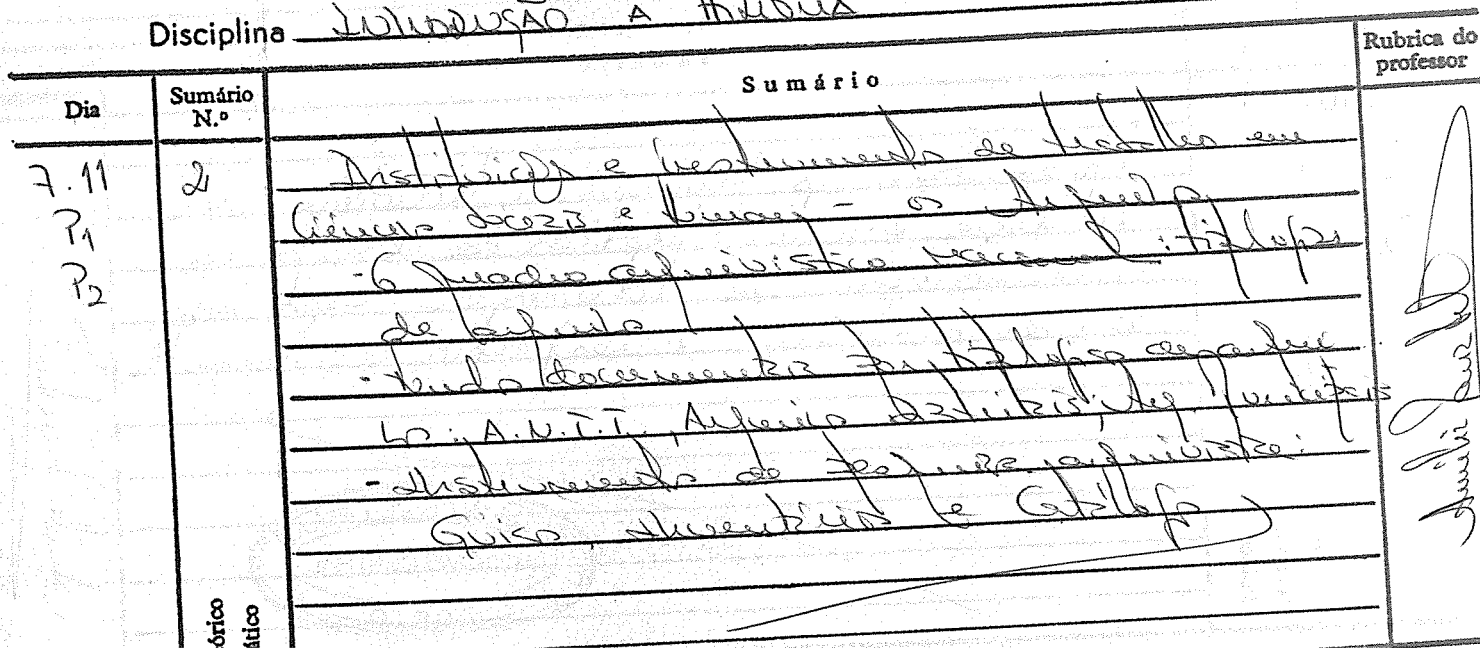 Disciplina INTRODUÇÃO A HISTÓRIA
Dia
Sumário N.º
Sumário
Rubrica do professor
7.11
P1
P2
2
Instituições e instrumentos de trabalho em
Ciências Sociais e Humanas - os Arquivos
- O quadro arquivístico nacional : tipologia
de arquivos
- fundos documentais
A.N.T.T., Arquivos Distritais, Arq. Municipais
- Instrumentos de pesquisa arquivística:
Guias, Inventários e Catálogos
órico
ático